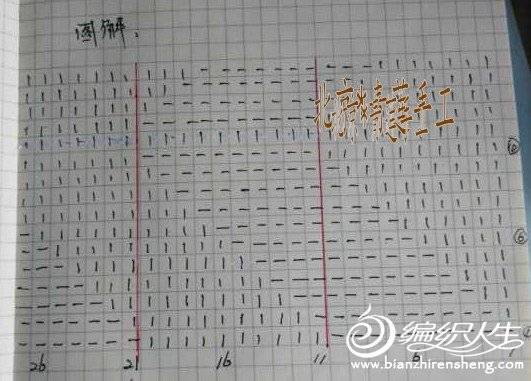 图解:
北京婧燕手工
⑩
⑥
26 21 16 11 6 1
编织人生
www.bianzhirensheng.com